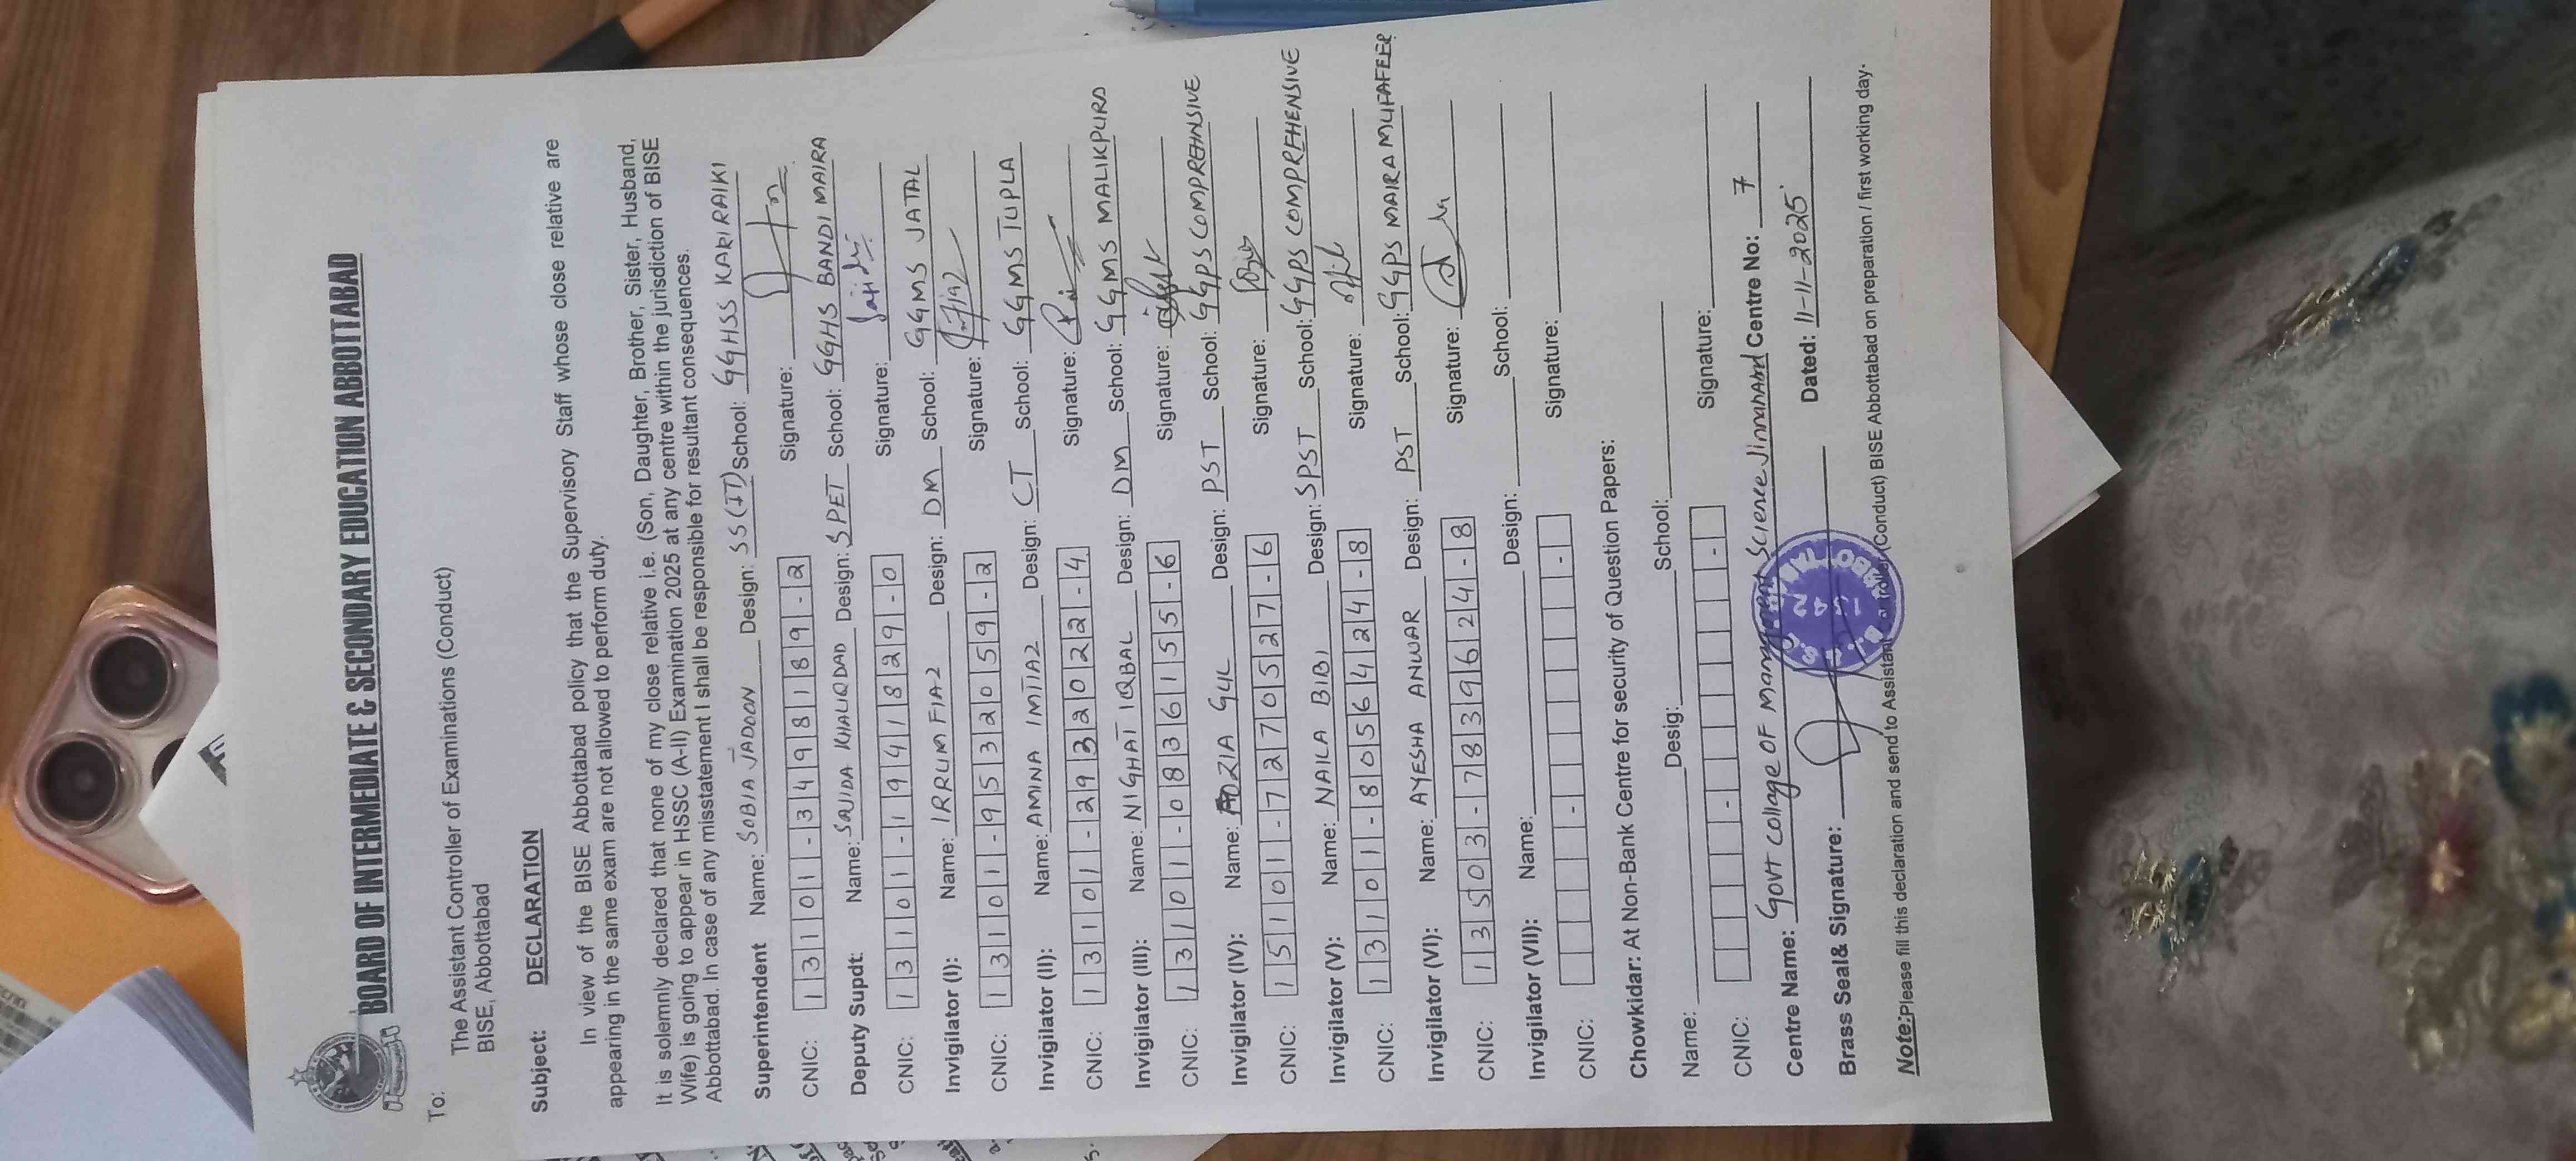 BOARD OF INTERMEDIATE & SECONDARY EDUCATION ABBOTTABAD
To:
The Assistant Controller of Examinations (Conduct)
BISE, Abbottabad
Subject: DECLARATION
In view of the BISE Abbottabad policy that the Supervisory Staff whose close relative are
appearing in the same exam are not allowed to perform duty.
It is solemnly declared that none of my close relative i.e. (Son, Daughter, Brother, Sister, Husband,
Wife) is going to appear in HSSC (A-II) Examination 2025 at any centre within the jurisdiction of BISE
Abbottabad. In case of any misstatement I shall be responsible for resultant consequences.
Superintendent Name: SOBIA JADOON Design: SS(IT) School: GGHSS KAKI RAIKI
CNIC: 13101-3498189-2 Signature:
Deputy Supdt: Name: SAJIDA KHALIQDAD Design: SPET School: GGHS BANDI MAIRA
CNIC: 13101-1941829-0 Signature:
Invigilator (I): Name: IRRUM FIAZ Design: DM School: GGMS JATAL
CNIC: 13101-9532059-2 Signature:
Invigilator (II): Name: AMINA IMTIAZ Design: CT School: GGMS TUPLA
CNIC: 13101-2932022-4 Signature:
Invigilator (III): Name: NIGHAT IQBAL Design: DM School: GGMS MALIKPURA
CNIC: 13101-0836155-6 Signature:
Invigilator (IV): Name: GUL Design: PST School: GGPS COMPREHNSIVE
CNIC: 15101-7270527-6 Signature:
Invigilator (V): Name: NAILA BIBI Design: SPST School: GGPS COMPREHENSIVE
CNIC: 13101-8056424-8 Signature:
Invigilator (VI): Name: AYESHA ANWAR Design: PST School: GGPS MAIRA
CNIC: 13503-7839624-8 Signature:
Invigilator (VII): Name: Design: School:
CNIC: - - Signature:
Chowkidar: At Non-Bank Centre for security of Question Papers:
Name: Desig: School:
CNIC: - - Signature:
Centre Name: Govt Collage OF Management Science Jinnahabad Centre No: 7
Brass Seal& Signature: Dated: 11-11-2025
Note:Please fill this declaration and send to Assistant Controller (Conduct) BISE Abbottabad on preparation / first working day.